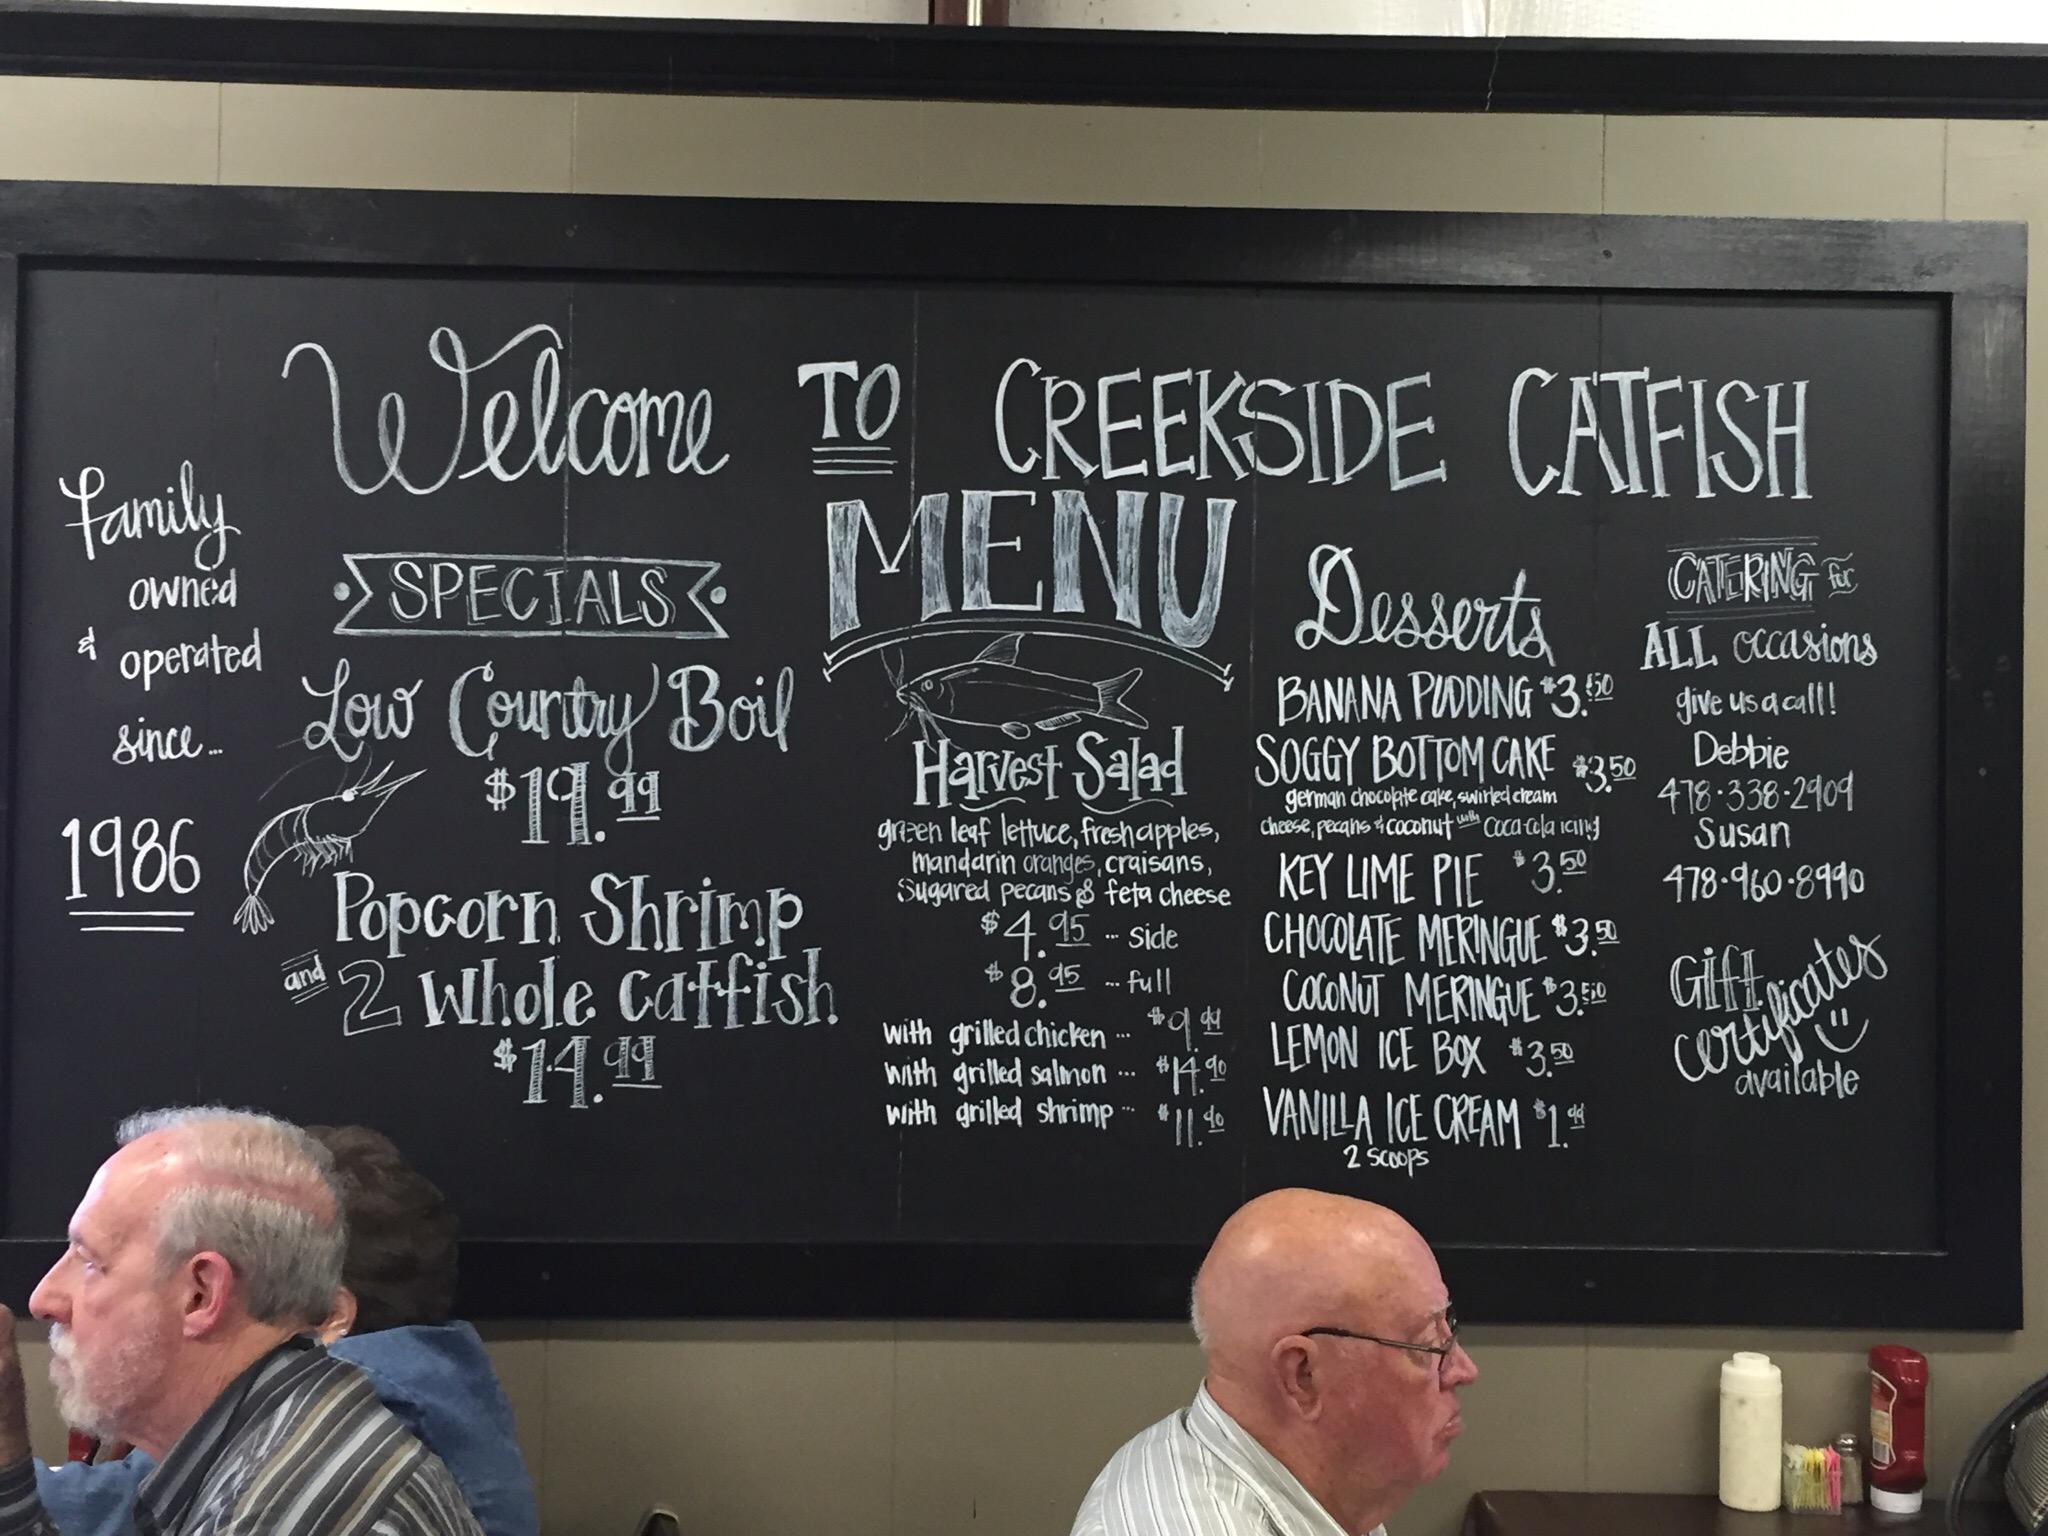 Welcome TO CREEKSIDE CATFISH
MENU
family
owned
& operated
since...
1986
SPECIALS
Low Country Boil
$19.99
Popcorn Shrimp
and 2 Whole Catfish
$14.99
Harvest Salad
green leaf lettuce, fresh apples,
mandarin oranges, craisans,
sugared pecans & feta cheese
$4.95 ... side
$8.95 ... full
with grilled chicken ... $9.99
with grilled salmon ... $14.90
with grilled shrimp ... $11.90
Desserts
BANANA PUDDING $3.50
SOGGY BOTTOM CAKE $3.50
german chocolate cake, swirled cream
cheese, pecans & coconut with Coca-Cola icing
KEY LIME PIE $3.50
CHOCOLATE MERINGUE $3.50
COCONUT MERINGUE $3.50
LEMON ICE BOX $3.50
VANILLA ICE CREAM $1.99
2 scoops
CATERING for
ALL occasions
give us a call!
Debbie
478·338·2909
Susan
478·960·8990
Gift
certificates
available